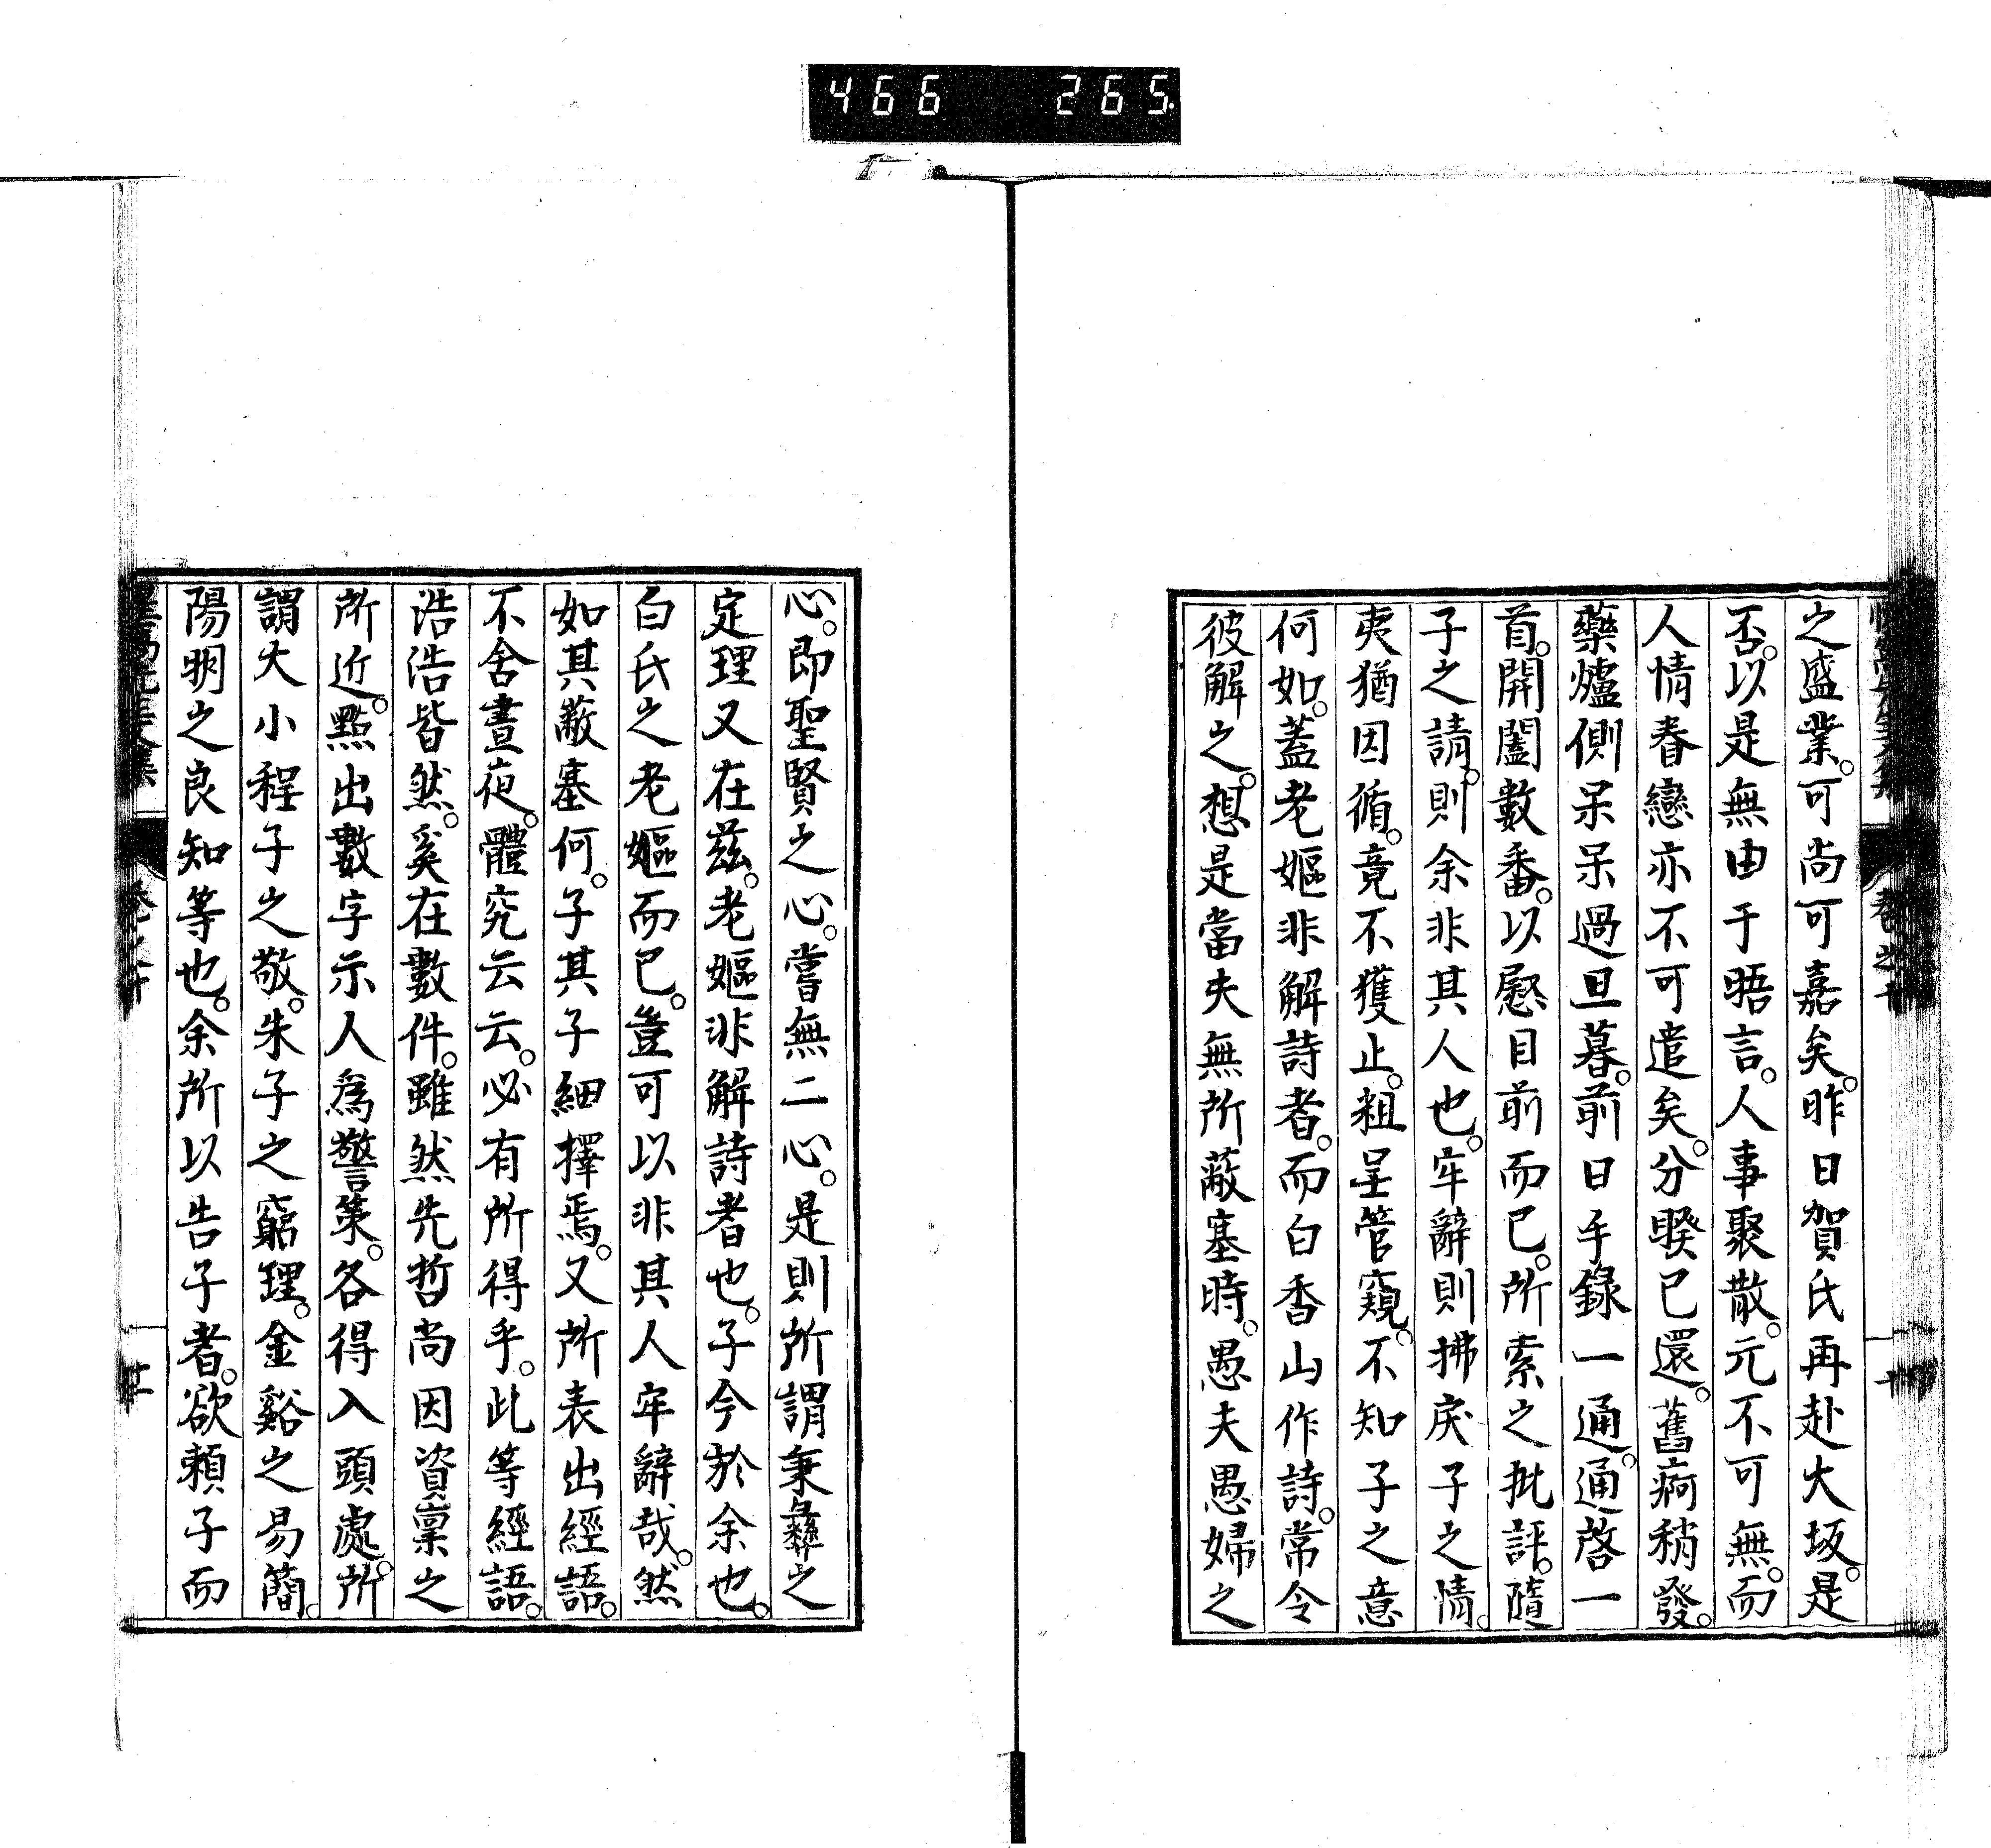 466 265
之盛業。可尚可嘉矣。昨日賀氏再赴大坂。是
否。以是無由于晤言。人事聚散。元不可無。而
人情眷戀亦不可遣矣。分睽已還。舊痾稍發。
藥爐側呆呆過旦暮。前日手錄一通。通啓一
首。開闔數番。以慰目前而已。所索之批評。隨
子之請。則余非其人也。牢辭則拂戾子之情。
夷猶因循。竟不獲止。粗呈管窺。不知子之意
何如。蓋老嫗非解詩者。而白香山作詩。常令
彼解之。想是當夫無所蔽塞時。愚夫愚婦之
心。即聖賢之心。嘗無二心。是則所謂秉彝之
定理又在茲。老嫗非解詩者也。子今於余也。
白氏之老嫗而已。豈可以非其人牢辭哉。然
如其蔽塞何。子其子細擇焉。又所表出經語。
不舍晝夜。體究云云。必有所得乎。此等經語。
浩浩皆然。奚在數件。雖然先哲尚因資稟之
所近。點出數字示人爲警策。各得入頭處。所
謂大小程子之敬。朱子之窮理。金谿之易簡。
陽明之良知等也。余所以告子者。欲賴子而